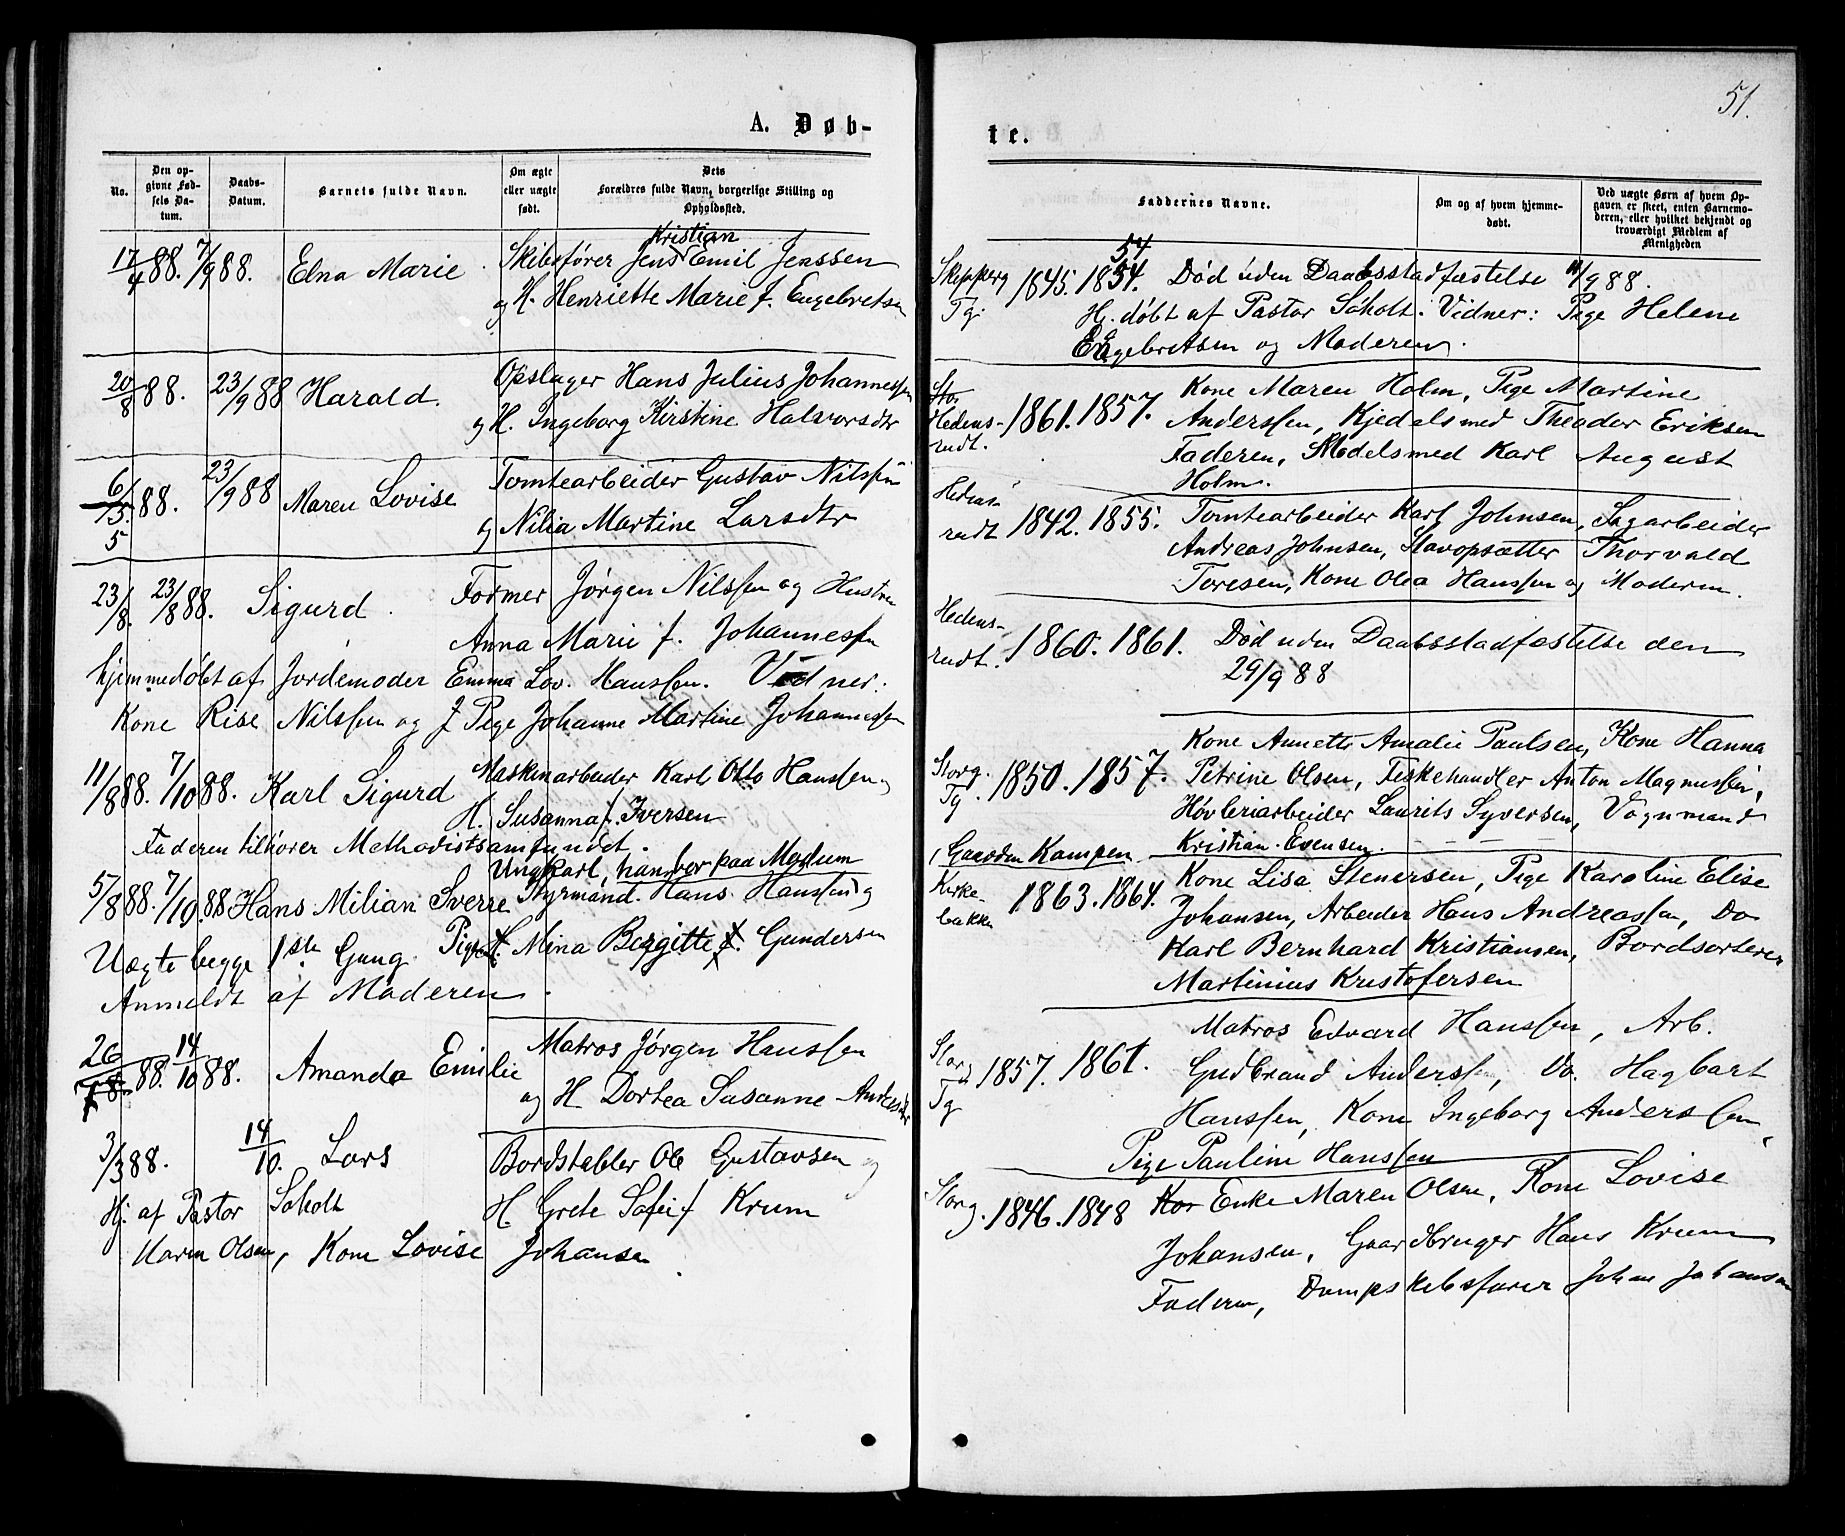 51.
A. Døb-
te.
No.
Den op-
givne Fød-
sels Da-
tum.
Daabs-
Datum.
Barnets fulde Navn.
Om ægte
eller uægte
født.
Dets
Forældres fulde Navn, borgerlige Stilling og
Opholdssted.
Faddernes Navne.
Om og af hvem hjemme-
døbt.
Ved uægte Børn af hvem Op-
gaven er skeet, enten Barnemo-
deren, eller hvilket bekjendt og
troværdigt Medlem af
Menigheden
17/4 88. 7/9 88. Elna Marie Skibsfører Jens Kristian Emil Jenssen
og H. Henriette Marie f. Engebretsen
Skipperg 1845. 1854. 54. Død uden Daabsstadfæstelse 11/9 88.
Tg. Hj. døbt af Pastor Søholt. Vidner: Pige Helene
Engebretsen og Moderen.
20/8 88. 23/9 88 Harald. Opslager Hans Julius Johannessen
og H. Ingeborg Kirstine Halvorsdtr
Stor Kone Maren Holm, Pige Martine
Hedens- 1861. 1857. Anderssen, Kjedelsmed Theodor Eriksen
rudt. Faderen, Kjedelsmed Karl August
Holm.
6/5 88. 23/9 88 Maren Lovise Tomtearbeider Gustav Nilssen
5 og Nilia Martine Larsdtr
Hedens-
rudt 1842. 1855. Tomtearbeider Karl Johnsen, Sagarbeider
Andreas Johnsen, Stavopsætter Thorvald
Toresen, Kone Olea Hanssen og Moderen.
23/8. 23/8 88. Sigurd. Former Jørgen Nilssen og Hustru
Anna Marie f. Johannessen
hjemmedøbt af Jordemoder Emma Lov. Hanssen. Vidner:
Kone Rise Nilssen og Pige Johanne Martine Johannessen
Hedens-
rudt. 1860. 1861. Død uden Daabsstadfæstelse den
29/9 88
11/8 88. 7/10 88. Karl Sigurd Maskinarbeider Karl Otto Hanssen og
H. Susanna f. Iversen
Faderen tilhører Methodistsamfundet.
Kone Annette Amalie Paulsen, Kone Hanna
Storg. 1850. 1857. Petrine Olsen, Fiskehandler Anton Magnussen,
Tg. Høvleriarbeider Laurits Syversen, Vognmand
Kristian Evensen.
Ungkarl, han bor paa Modum
5/8 88. 7/10. 88 Hans Milian Sverre Styrmand Hans Hanssen og
Uægte begge 1ste Gang. Pige Mina Bergitte f. Gundersen
Anmeldt af Moderen.
(Gaarden Kampen
Kirke- 1863. 1864. Kone Lisa Stenersen, Pige Karoline Elise
bakke Johansen, Arbeider Hans Andreassen, Do
Karl Bernhard Kristiansen, Bordsorterer
Martinius Kristofersen
26/8 88. 14/10 88. Amanda Emilie Matros Jørgen Hanssen
og H Dortea Susanne Andersdtr
Matros Edvard Hanssen, Arb.
Storg 1857. 1861. Gudbrand Anderssen, Do. Hagbart
Tg Hanssen, Kone Ingeborg Anderssen,
Pige Pauline Hanssen
3/3 88. 14/10. Lars Bordstabler Ole Gustavsen og
Hj. af Pastor Søholt H. Grete Sofie f Krum
Maren Olsen, Kone Lovise Johansen
Storg. 1846. 1848 Kon Enke Maren Olsen, Kone Lovise
Johansen, Gaardbruger Hans Krum
Faderen, Dampskibsfører Johan Johansen